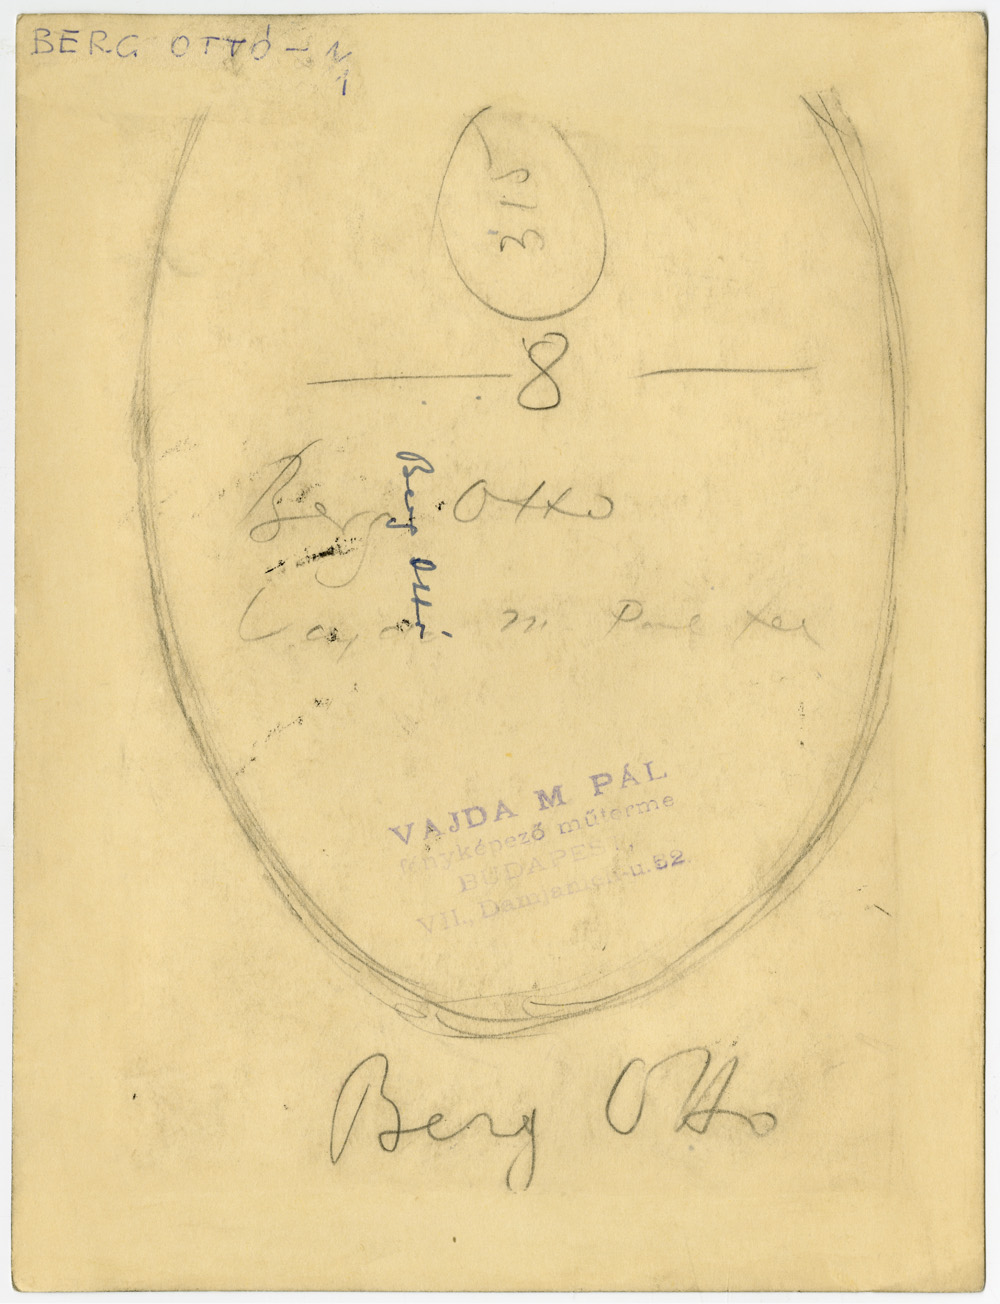 BERG OTTÓ - N
1
315
8
Berg Otto
Berg Ottó
M Pál
VAJDA M PÁL
fényképező műterme
BUDAPEST,
VII., Damjanich-u. 52.
Berg Otto